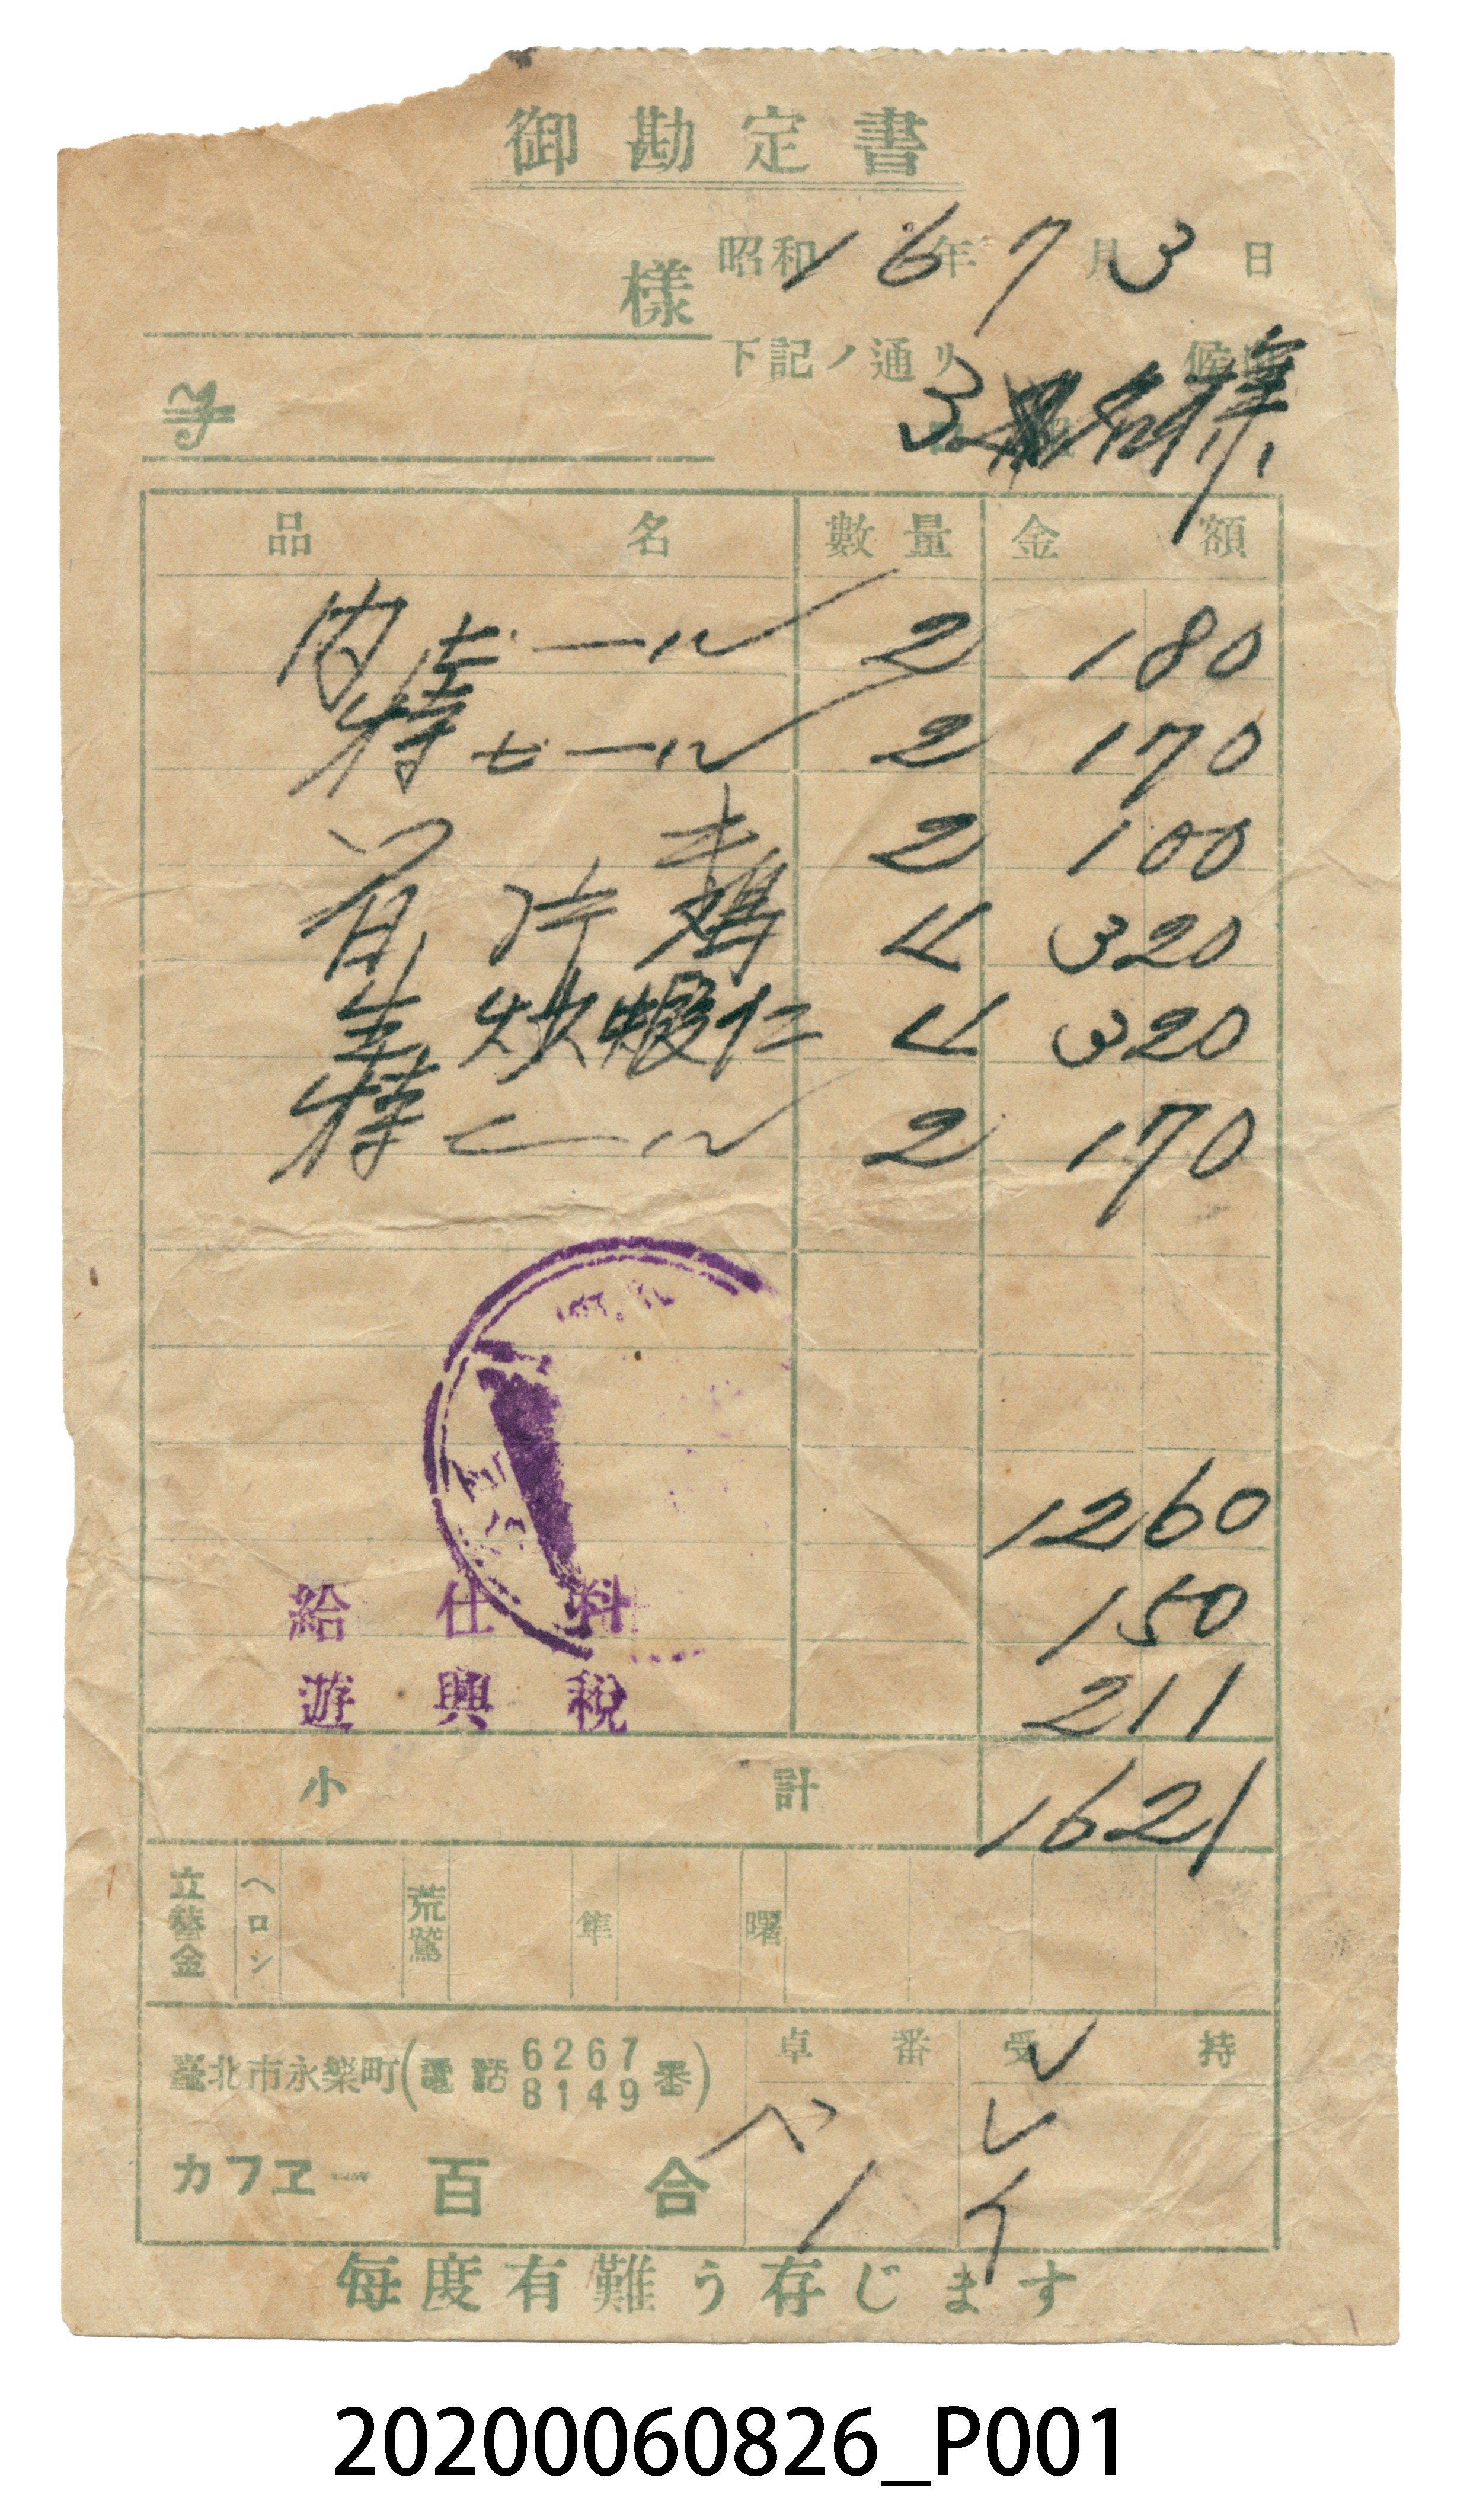 御勘定書
昭和16年7月3日
樣
下記ノ通リ 候也
3名様
品名 數量 金額
内ビール 2 180
特ビール 2 170
2 100
鶏 〃 320
炒蝦仁 〃 320
特ビール 2 170
1260
給仕料 150
遊興税 211
小計 1621
立替金 ヘロン 荒鷲 隼 曙
臺北市永樂町(電話6267 8149番) 卓番 受持
カフヱー 百合
毎度有難う存じます
20200060826_P001